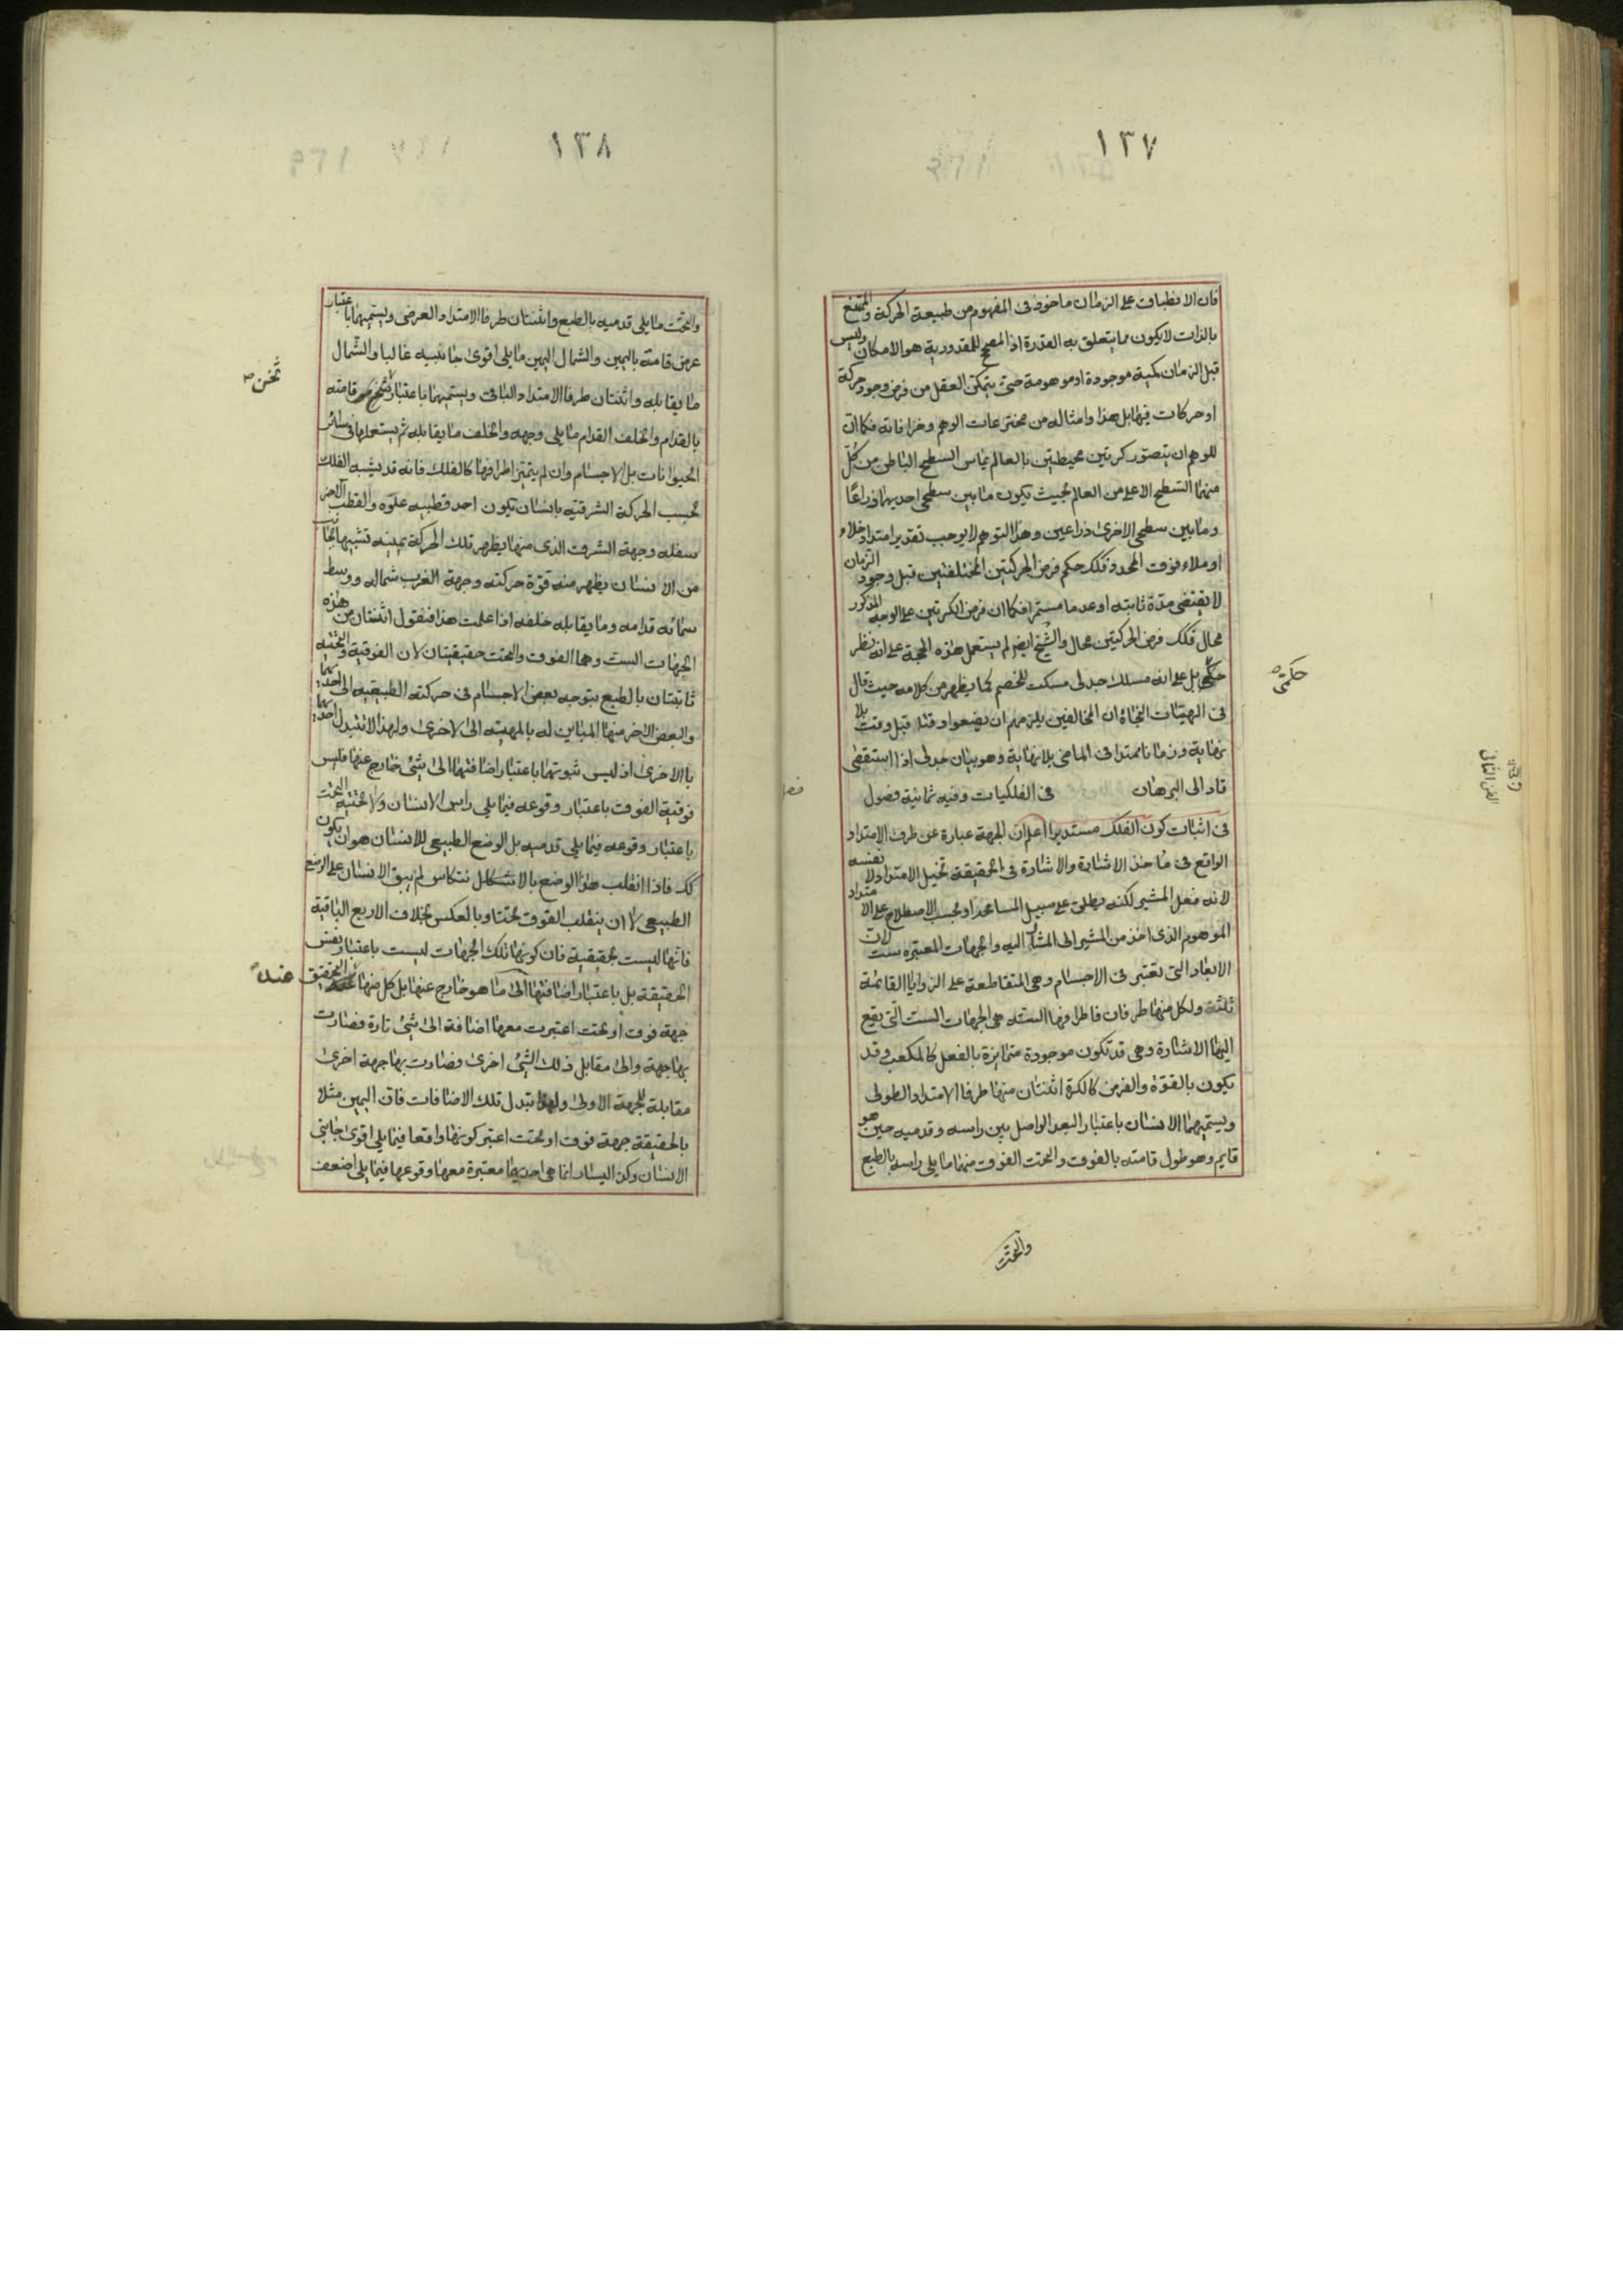 ١٣٧
فان الانطباق على الزمان ماخوذ فى المفهوم من طبيعة الحركة والممتنع
بالذات لا يكون مما يتعلق به القدرة اذ المصحح للمقدورية هو الامكان وليس
قبل الزمان كمية موجودة او موهومة حتى يتمكن العقل من فرض وجود حركة
او حركات فيها بل هذا وامثاله من مخترعات الوهم وخرافاته فكما ان
للوهم ان يتصور كرتين محيطتين بالعالم يماس السطح الباطن من كل
منهما السطح الاعلى من العالم بحيث يكون ما بين سطحى احديهما ذراعا
وما بين سطحى الاخرى ذراعين وهذا التوهم لا يوجب تقدير امتداد خلاء
او ملاء فوق المحدد فكك حكم فرض الحركتين المختلفتين قبل وجود الزمان
لا يقتضى مدة ثابته او عدما مستمرا فكما ان فرض الكرتين على الوجه المذكور
محال فكك فرض الحركتين محال والشيخ ايض لم يستعمل هذه الحجة على انه نظر
حكمى بل على انه مسلك جدلى مسكت للخصم كما يظهر من كلامه حيث قال
حكمى
فى الهيات النجاة ان المخالفين يلزمهم ان يضعوا وقتا قبل وقت بلا
نهاية وزمانا ممتدا فى الماضى بلا نهاية وهو بيان جدلى اذا استقصى
قاد الى البرهان فى الفلكيات وفيه ثمانية فصول
الفن الثانى
فى اثبات كون الفلك مستديرا اعلم ان الجهة عبارة عن طرف الامتداد
الواقع فى ماخذ الاشارة والاشارة فى الحقيقة تخيل الامتداد لا نفسه
لانه فعل المشير لكنه يطلق على سبيل المساعدة او بحسب الاصطلاح على الامتداد
الموهوم الذى اخذ من المشير الى المشار اليه والجهات المعتبره ست لان
الابعاد التى تعتبر فى الاجسام وهى المتقاطعة على الزوايا القائمة
ثلثة ولكل منها طرفان فاطرافها الستة هى الجهات الست التى يقع
اليها الاشارة وهى قد تكون موجودة متمايزة بالفعل كالمكعب وقد
يكون بالقوة والفرض كالكرة اثنتان منها طرفا الامتداد الطولى
ويسميهما الانسان باعتبار البعد الواصل بين راسه وقدميه حين هو
قايم وهو طول قامته بالفوق والتحت الفوق منهما ما يلى راسه بالطبع
والتحت
١٣٨
والتحت ما يلى قدميه بالطبع واثنتان طرفا الامتداد العرضى ويسميهما باعتبار
عرض قامته باليمين والشمال اليمين ما يلى اقوى جانبيه غالبا والشمال
ما يقابله واثنتان طرفا الامتداد الباقى ويسميهما باعتبار ثخن قامته
ثخن
بالقدام والخلف القدام ما يلى وجهه والخلف ما يقابله ثم يستعملها فى سائر
الحيوانات بل الاجسام وان لم يتميز اطرافها كالفلك فانه قد يشبه الفلك
بحسب الحركة الشرقية بانسان يكون احد قطبيه علوه والقطب الاخر
سفله وجهة الشرق الذى منها يظهر تلك الحركة يمينه تشبيها بجانب
من الانسان يظهر منه قوة حركته وجهة الغرب شماله ووسط
سمائه قدامه وما يقابله خلفه اذا علمت هذا فنقول اثنتان من هذه
الجهات الست وهما الفوق والتحت حقيقيتان لان الفوقية والتحتية
ثابتتان بالطبع يتوجه بعض الاجسام فى حركته الطبيعية الى احديهما
والبعض الاخر منها المباين له بالمهية الى الاخرى ولهذا لا تتبدل احديهما
بالاخرى اذ ليس ثبوتهما باعتبار اضافتهما الى شئ خارج عنهما فليس
فوقية الفوق باعتبار وقوعه فيما يلى راس الانسان ولا تحتية التحت
باعتبار وقوعه فيما يلى قدميه بل الوضع الطبيعى للانسان هو ان يكون
كك فاذا انقلب هذا الوضع بالانتكاس لم يبق الانسان على الوضع
الطبيعى لا ان ينقلب الفوق تحتا وبالعكس بخلاف الاربع الباقية
فانها ليست بحقيقية فان كونها تلك الجهات ليست باعتبار نفس
الحقيقة بل باعتبار اضافتها الى ما هو خارج عنها بل كل منها عند التحقيق
عند
جهة فوق او تحت اعتبرت معها اضافة الى شئ تارة فصارت
بها جهة والى مقابل ذلك الشئ اخرى وصارت بها جهة اخرى
مقابلة للجهة الاولى ولهذا تبدل تلك الاضافات فان اليمين مثلا
بالحقيقة جهة فوق او تحت اعتبر كونها واقعا فيما يلى اقوى جانبى
الانسان وكذا اليسار انما هى احديهما معتبرة معها وقوعها فيما يلى اضعف